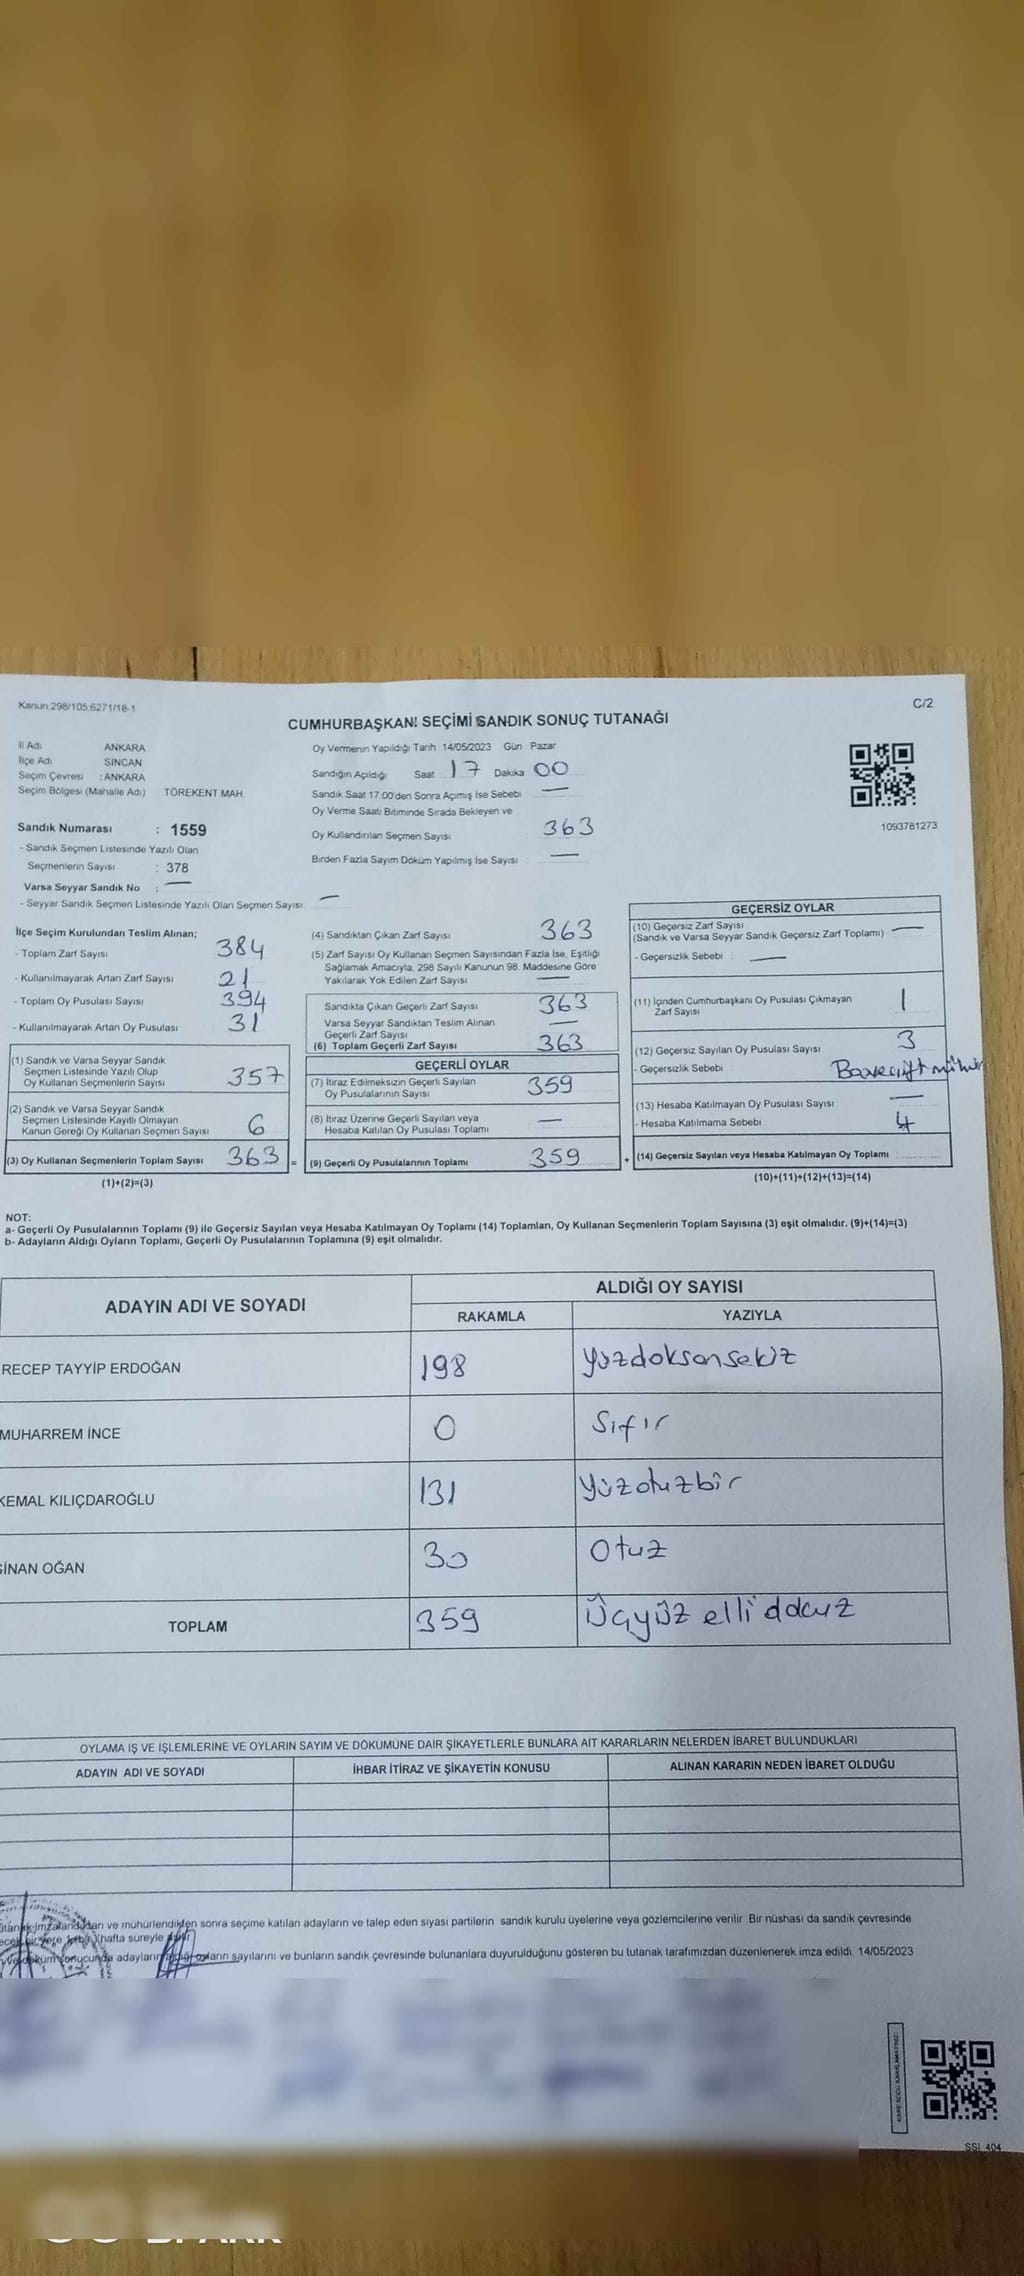 Kanun 298/105,6271/18-1
C/2
CUMHURBAŞKANI SEÇİMİ SANDIK SONUÇ TUTANAĞI
İl Adı ANKARA
İlçe Adı SİNCAN
Seçim Çevresi : ANKARA
Seçim Bölgesi (Mahalle Adı) TÖREKENT MAH
Sandık Numarası : 1559
- Sandık Seçmen Listesinde Yazılı Olan
Seçmenlerin Sayısı : 378
Varsa Seyyar Sandık No : —
- Seyyar Sandık Seçmen Listesinde Yazılı Olan Seçmen Sayısı: —
Oy Vermenin Yapıldığı Tarih 14/05/2023 Gün Pazar
Sandığın Açıldığı Saat 17 Dakika 00
Sandık Saat 17:00'den Sonra Açımış İse Sebebi —
Oy Verme Saati Bitiminde Sırada Bekleyen ve
Oy Kullandırılan Seçmen Sayısı 363
Birden Fazla Sayım Döküm Yapılmış İse Sayısı —
1093781273
İlçe Seçim Kurulundan Teslim Alınan;
- Toplam Zarf Sayısı 384
- Kullanılmayarak Artan Zarf Sayısı 21
- Toplam Oy Pusulası Sayısı 394
- Kullanılmayarak Artan Oy Pusulası 31
(1) Sandık ve Varsa Seyyar Sandık
Seçmen Listesinde Yazılı Olup
Oy Kullanan Seçmenlerin Sayısı 357
(2) Sandık ve Varsa Seyyar Sandık
Seçmen Listesinde Kayıtlı Olmayan
Kanun Gereği Oy Kullanan Seçmen Sayısı 6
(3) Oy Kullanan Seçmenlerin Toplam Sayısı 363 =
(1)+(2)=(3)
(4) Sandıktan Çıkan Zarf Sayısı 363
(5) Zarf Sayısı Oy Kullanan Seçmen Sayısından Fazla İse, Eşitliği
Sağlamak Amacıyla, 298 Sayılı Kanunun 98. Maddesine Göre
Yakılarak Yok Edilen Zarf Sayısı —
Sandıkta Çıkan Geçerli Zarf Sayısı 363
Varsa Seyyar Sandıktan Teslim Alınan
Geçerli Zarf Sayısı —
(6) Toplam Geçerli Zarf Sayısı 363
GEÇERLİ OYLAR
(7) İtiraz Edilmeksizin Geçerli Sayılan
Oy Pusulalarının Sayısı 359
(8) İtiraz Üzerine Geçerli Sayılan veya
Hesaba Katılan Oy Pusulası Toplamı —
(9) Geçerli Oy Pusulalarının Toplamı 359 +
GEÇERSİZ OYLAR
(10) Geçersiz Zarf Sayısı
(Sandık ve Varsa Seyyar Sandık Geçersiz Zarf Toplamı) —
- Geçersizlik Sebebi : —
(11) İçinden Cumhurbaşkanı Oy Pusulası Çıkmayan
Zarf Sayısı 1
(12) Geçersiz Sayılan Oy Pusulası Sayısı 3
- Geçersizlik Sebebi :
(13) Hesaba Katılmayan Oy Pusulası Sayısı —
- Hesaba Katılmama Sebebi 4
(14) Geçersiz Sayılan veya Hesaba Katılmayan Oy Toplamı :
(10)+(11)+(12)+(13)=(14)
NOT:
a- Geçerli Oy Pusulalarının Toplamı (9) ile Geçersiz Sayılan veya Hesaba Katılmayan Oy Toplamı (14) Toplamları, Oy Kullanan Seçmenlerin Toplam Sayısına (3) eşit olmalıdır. (9)+(14)=(3)
b- Adayların Aldığı Oyların Toplamı, Geçerli Oy Pusulalarının Toplamına (9) eşit olmalıdır.
ADAYIN ADI VE SOYADI ALDIĞI OY SAYISI
RAKAMLA YAZIYLA
RECEP TAYYİP ERDOĞAN 198 Yüzdoksansekiz
MUHARREM İNCE 0 Sıfır
KEMAL KILIÇDAROĞLU 131 Yüzotuzbir
SİNAN OĞAN 30 Otuz
TOPLAM 359 Üçyüz elli dokuz
OYLAMA İŞ VE İŞLEMLERİNE VE OYLARIN SAYIM VE DÖKÜMÜNE DAİR ŞİKAYETLERLE BUNLARA AİT KARARLARIN NELERDEN İBARET BULUNDUKLARI
ADAYIN ADI VE SOYADI İHBAR İTİRAZ VE ŞİKAYETİN KONUSU ALINAN KARARIN NEDEN İBARET OLDUĞU
ve mühürlendikten sonra seçime katılan adayların ve talep eden siyasi partilerin sandık kurulu üyelerine veya gözlemcilerine verilir Bir nüshası da sandık çevresinde
hafta süreyle
sonucunda adayların oyların sayılarını ve bunların sandık çevresinde bulunanlara duyurulduğunu gösteren bu tutanak tarafımızdan düzenlenerek imza edildi 14/05/2023
SSL 404